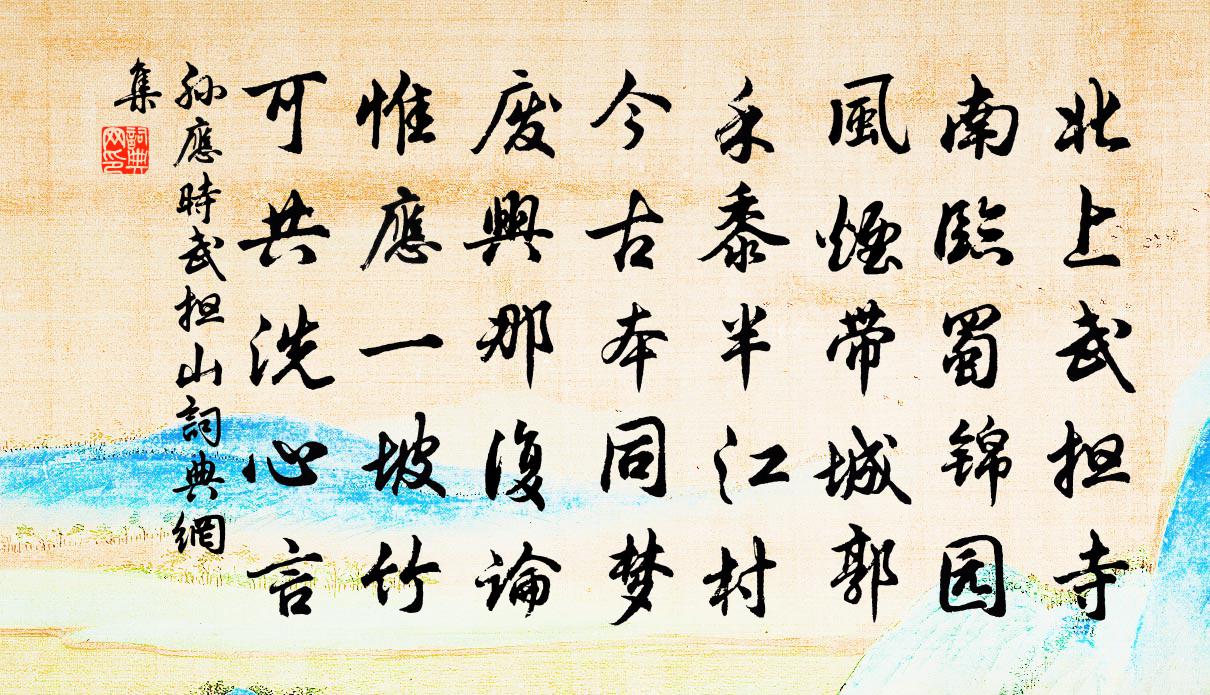 北上武担寺
南臨蜀锦园
風煙带城郭
禾黍半江村
今古本同梦
废興那復論
惟應一坡竹
可共洗心言
孙應時武担山詞典網
集
詞典
网印